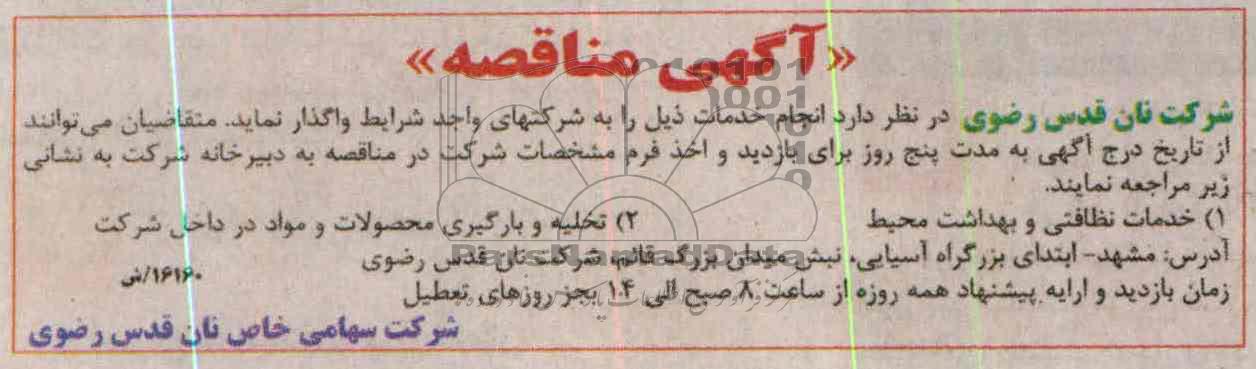 «آگهی مناقصه»
شرکت نان قدس رضوی در نظر دارد انجام خدمات ذیل را به شرکتهای واجد شرایط واگذار نماید. متقاضیان می‌توانند
از تاریخ درج آگهی به مدت پنج روز برای بازدید و اخذ فرم مشخصات شرکت در مناقصه به دبیرخانه شرکت به نشانی
زیر مراجعه نمایند.
۱) خدمات نظافتی و بهداشت محیط ۲) تخلیه و بارگیری محصولات و مواد در داخل شرکت
آدرس: مشهد- ابتدای بزرگراه آسیایی، نبش میدان بزرگ قائم، شرکت نان قدس رضوی
۱۶۱۶۰/ش
زمان بازدید و ارایه پیشنهاد همه روزه از ساعت ۸ صبح الی ۱۴ بجز روزهای تعطیل
شرکت سهامی خاص نان قدس رضوی
ParsNamadData